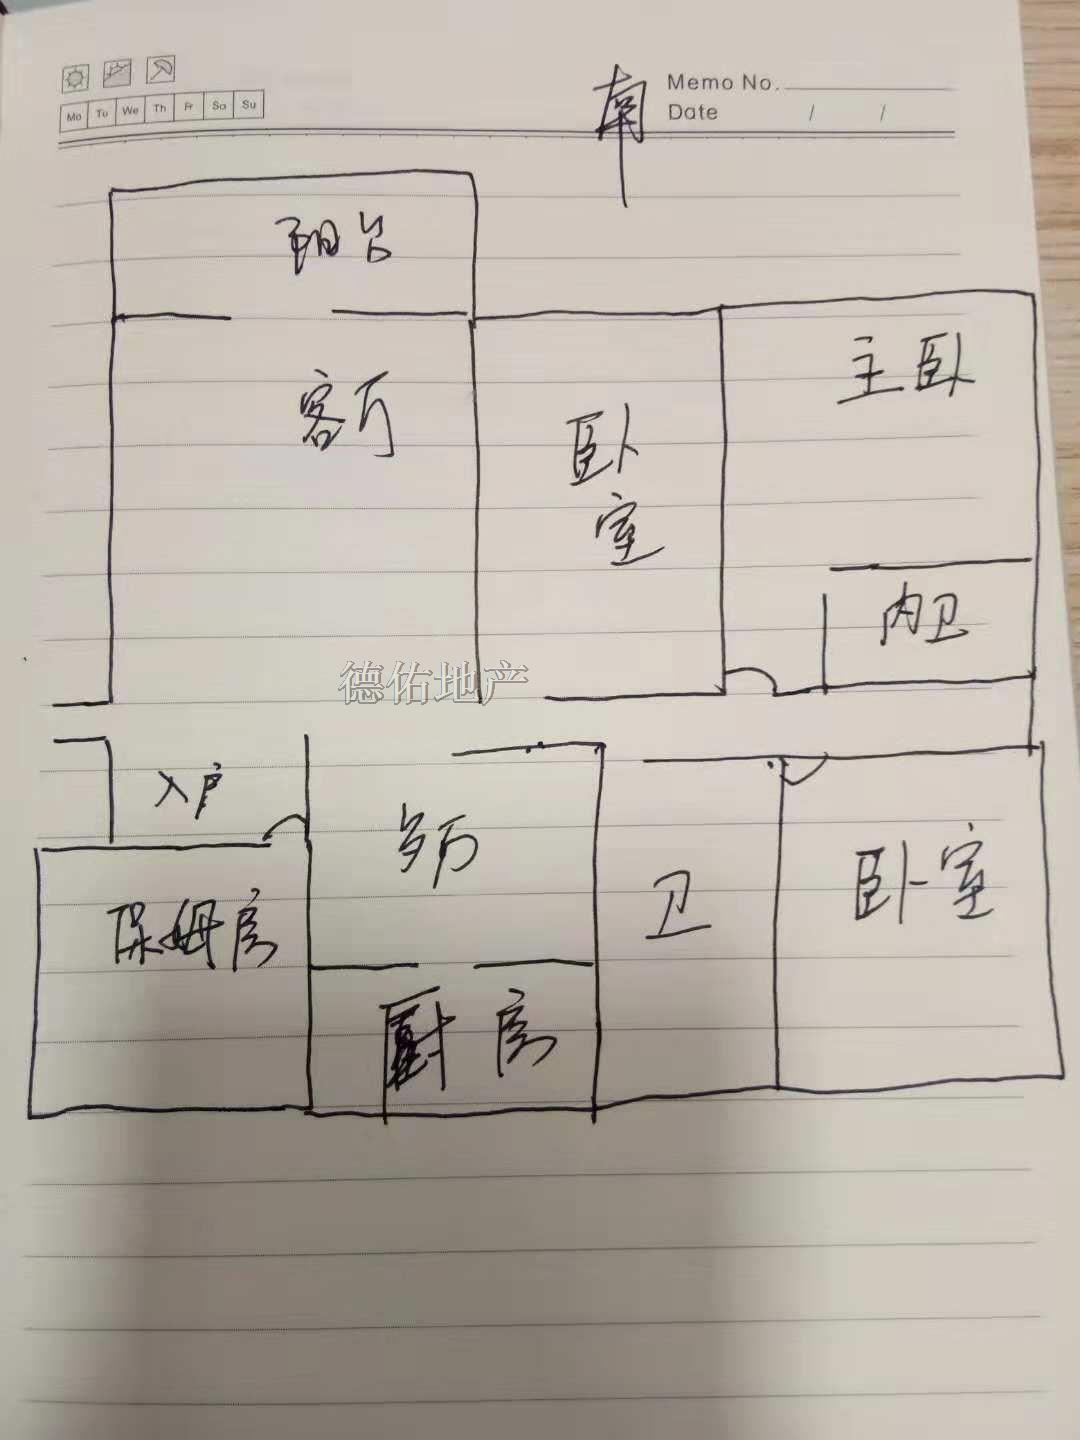 Memo No.
Mo Tu We Th Fr Sa Su
南
Date / /
阳台
客厅
主卧
卧室
内卫
德佑地产
入户
卫
卧室
保姆房
厨房